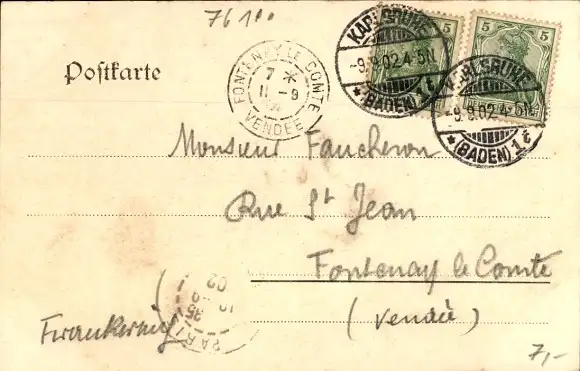 76100
Postkarte
FONTENAY LE COMTE
7 *
11 - 9
VENDÉE
KARLSRUHE
-9.9.02.4-5N.
* (BADEN) 1 t
5
5
KARLSRUHE
-9.9.02.4-5N.
* (BADEN) 1 t
Monsieur Faucheron
Rue St Jean
Fontenay le Comte
(Vendée)
Frankreich
PARI
7,-